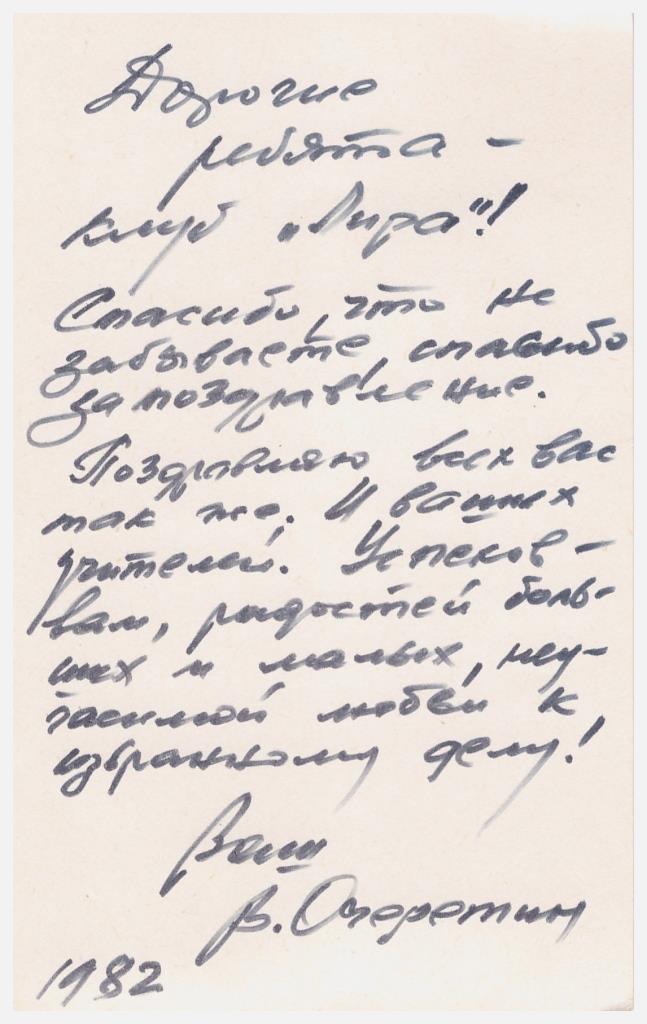 Дорогие
ребята –
клуб „Лира"!
Спасибо, что не
забываете, спасибо
за поздравление.
Поздравляю всех вас
так же. И ваших
учителей. Успехов –
вам, радостей боль-
ших и малых, неу-
гасимой любви к
избранному делу!
Ваш
В. Очеретин
1982